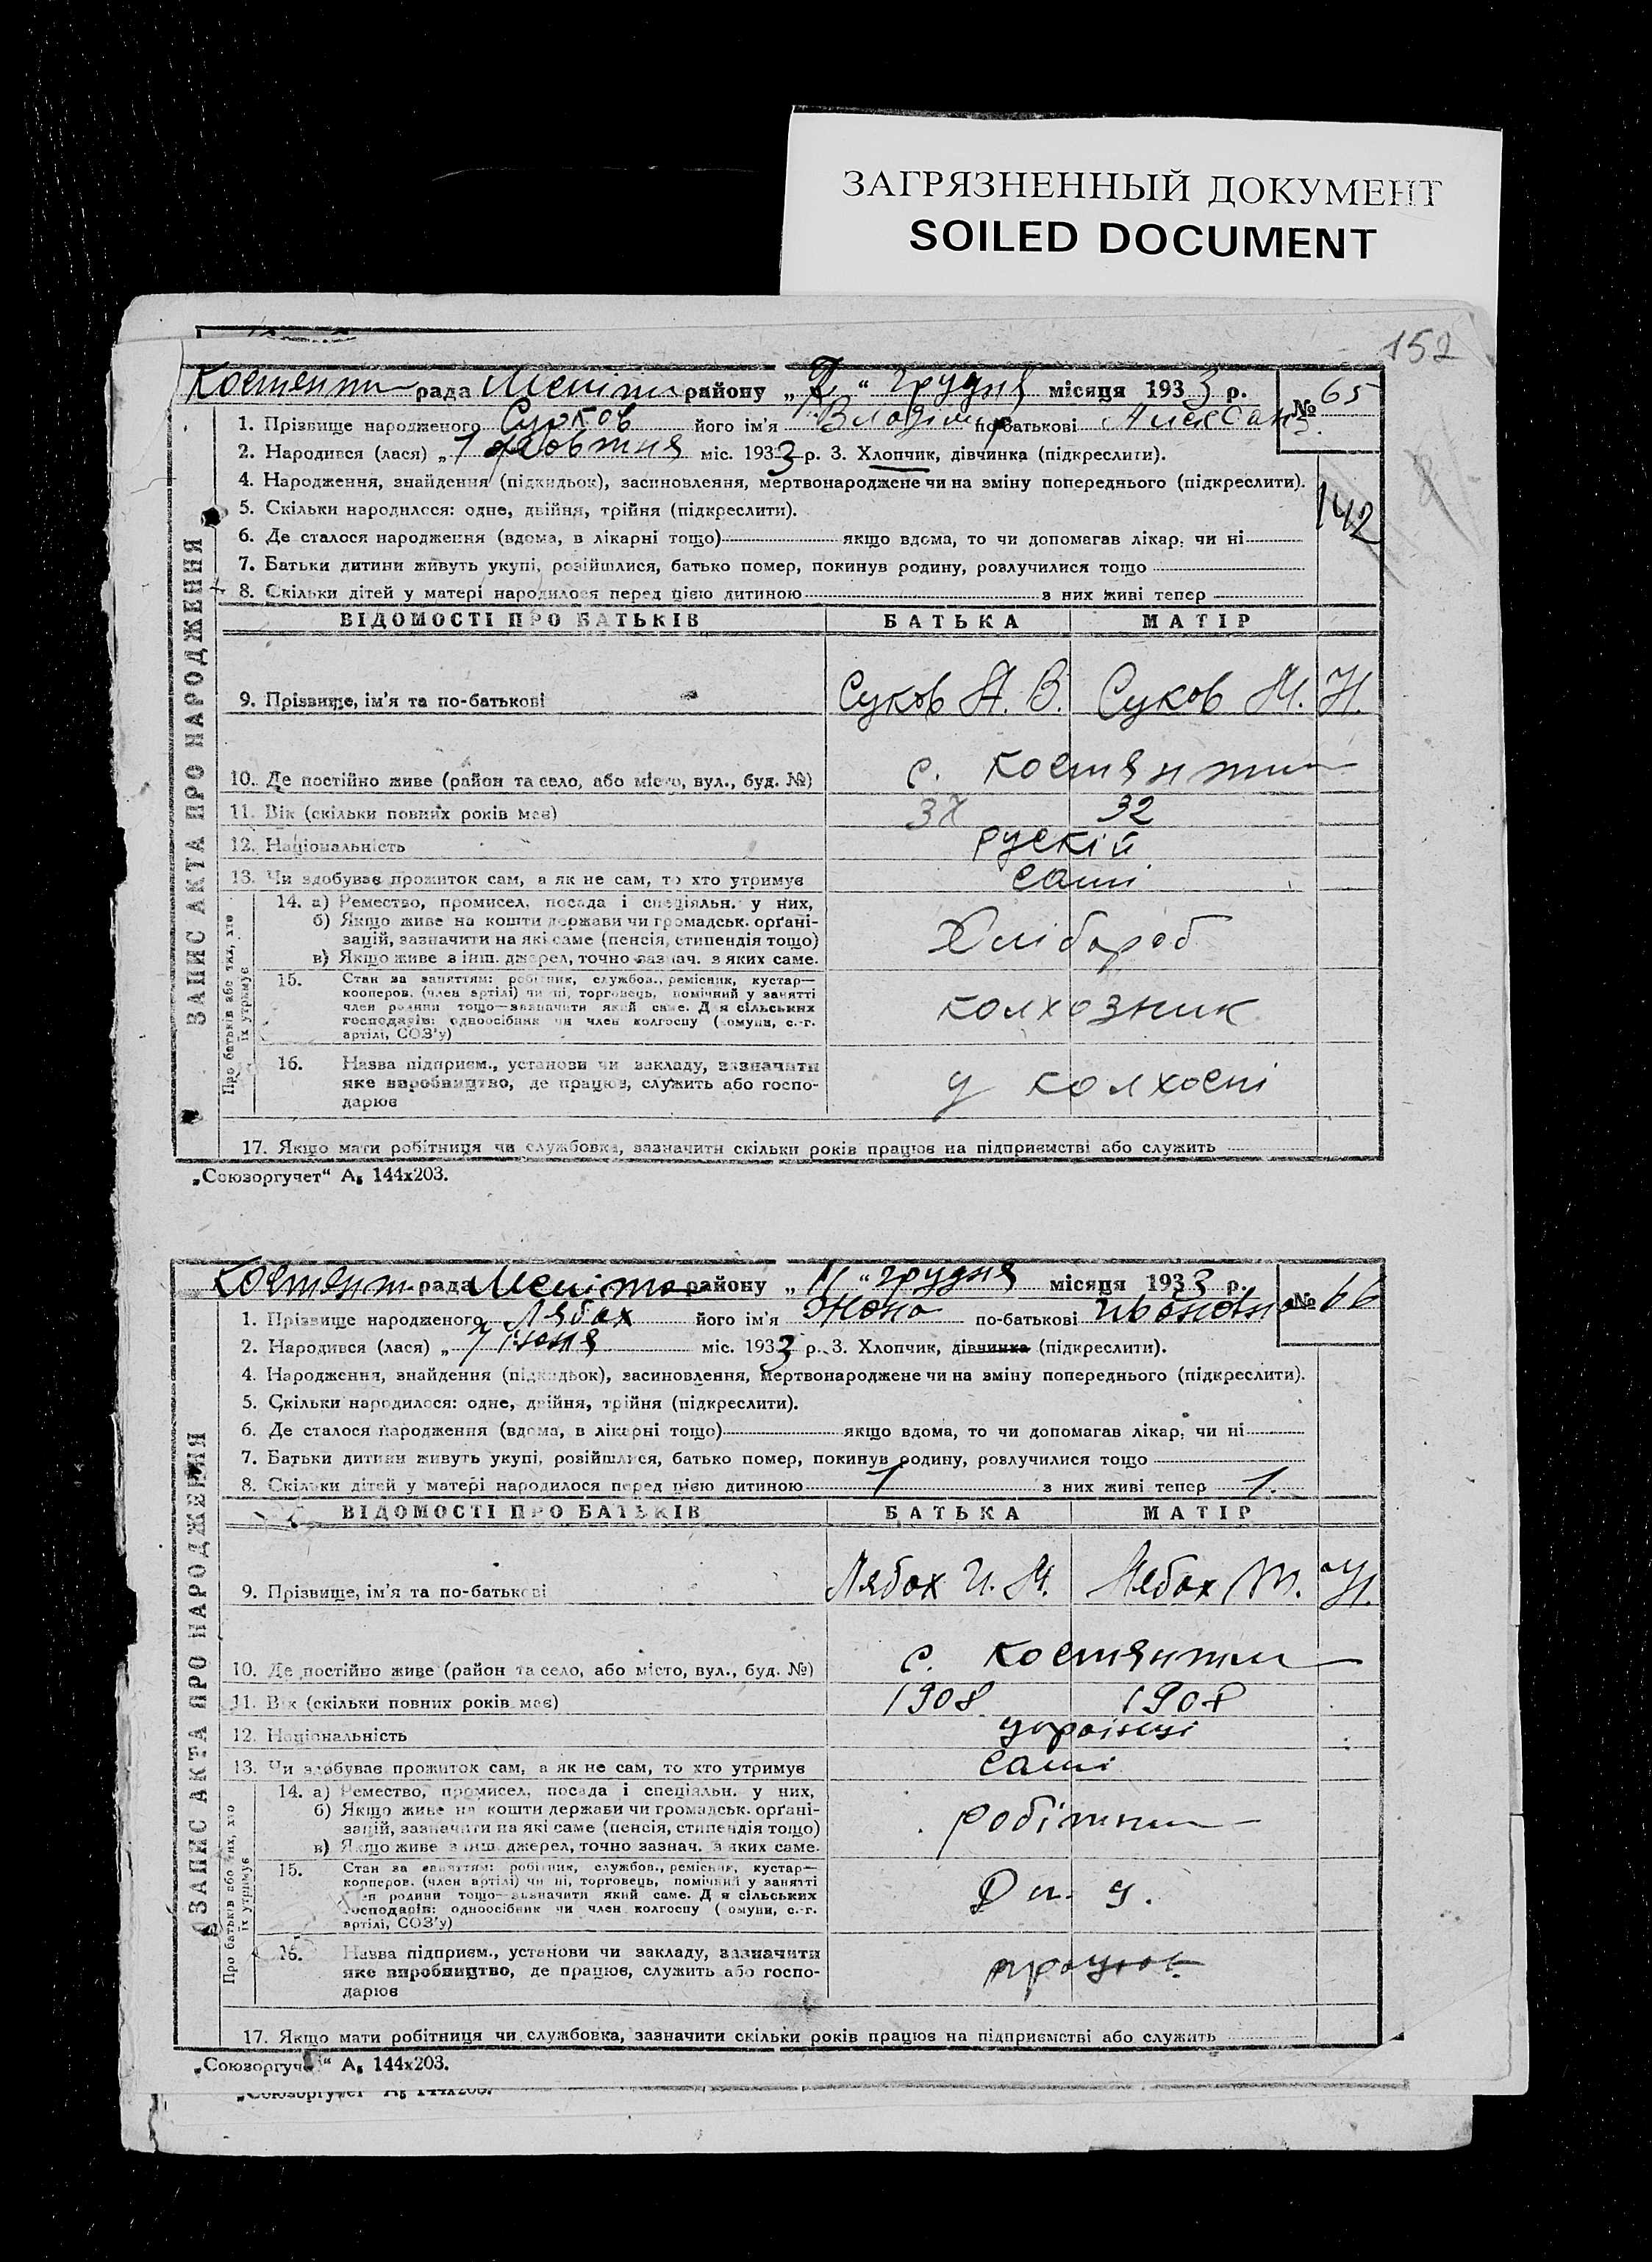 ЗАГРЯЗНЕННЫЙ ДОКУМЕНТ
SOILED DOCUMENT
152
рада району „ “ грудня місяця 1933 р. № 65
1. Прізвище народженого Суков його ім'я Владімір по-батькові Алексан
2. Народився (лася) „7 жовтня міс. 1933 р. 3. Хлопчик, дівчинка (підкреслити).
4. Народження, знайдення (підкидьок), засиновлення, мертвонароджене чи на зміну попереднього (підкреслити).
142
5. Скільки народилося: одне, двійня, трійня (підкреслити).
6. Де сталося народження (вдома, в лікарні тощо) якщо вдома, то чи допомагав лікар, чи ні
7. Батьки дитини живуть укупі, розійшлися, батько помер, покинув родину, розлучилися тощо
8. Скільки дітей у матері народилося перед цією дитиною з них живі тепер
ЗАПИС АКТА ПРО НАРОДЖЕННЯ
ВІДОМОСТІ ПРО БАТЬКІВ БАТЬКА МАТІР
9. Прізвище, ім'я та по-батькові Суков А. В. Суков М. Н.
10. Де постійно живе (район та село, або місто, вул., буд. №) с.
11. Вік (скільки повних років має) 32
12. Національність рускій
13. Чи здобуває прожиток сам, а як не сам, то хто утримує самі
Про батьків або тих, хто їх утримує
14. а) Ремество, промисел, посада і спеціяльн. у них,
б) Якщо живе на кошти держави чи громадськ. орґані-
зацій, зазначити на які саме (пенсія, стипендія тощо) Хлібороб
в) Якщо живе з інш. джерел, точно зазнач. з яких саме.
15. Стан за заняттям: робітник, службов., ремісник, кустар—
кооперов. (член артілі) чи ні, торговець, помічний у занятті
член родини тощо—зазначити який саме. Для сільських колхозник
господарів: одноосібник чи член колгоспу (комуни, с.-г.
артілі, СОЗ'у)
16. Назва підприєм., установи чи закладу, зазначити
яке виробництво, де працює, служить або госпо- у колхоспі
дарює
17. Якщо мати робітниця чи службовка, зазначити скільки років працює на підприємстві або служить
„Союзоргучет“ А₅ 144x203.
рада району „11“ грудня місяця 1933 р. № 66
1. Прізвище народженого Лябах його ім'я по-батькові Ивановна
2. Народився (лася) „7 юня міс. 1933 р. 3. Хлопчик, дівчинка (підкреслити).
4. Народження, знайдення (підкидьок), засиновлення, мертвонароджене чи на зміну попереднього (підкреслити).
5. Скільки народилося: одне, двійня, трійня (підкреслити).
6. Де сталося народження (вдома, в лікарні тощо) якщо вдома, то чи допомагав лікар, чи ні
7. Батьки дитини живуть укупі, розійшлися, батько помер, покинув родину, розлучилися тощо
8. Скільки дітей у матері народилося перед цією дитиною 1 з них живі тепер 1.
ЗАПИС АКТА ПРО НАРОДЖЕННЯ
ВІДОМОСТІ ПРО БАТЬКІВ БАТЬКА МАТІР
9. Прізвище, ім'я та по-батькові Лябах И. М. Лебах М.
10. Де постійно живе (район та село, або місто, вул., буд. №) с.
11. Вік (скільки повних років має) 1908 1908
12. Національність українці
13. Чи здобуває прожиток сам, а як не сам, то хто утримує самі
Про батьків або тих, хто їх утримує
14. а) Ремество, промисел, посада і спеціяльн. у них,
б) Якщо живе на кошти держави чи громадськ. орґані-
зацій, зазначити на які саме (пенсія, стипендія тощо)
в) Якщо живе з інш. джерел, точно зазнач. з яких саме.
15. Стан за заняттям: робітник, службов., ремісник, кустар—
кооперов. (член артілі) чи ні, торговець, помічний у занятті
член родини тощо—зазначити який саме. Для сільських
господарів: одноосібник чи член колгоспу (комуни, с.-г.
артілі, СОЗ'у)
16. Назва підприєм., установи чи закладу, зазначити
яке виробництво, де працює, служить або госпо- працює
дарює
17. Якщо мати робітниця чи службовка, зазначити скільки років працює на підприємстві або служить
„Союзоргучет“ А₅ 144x203.
„Союзоргучет“ А₅ 144x203.